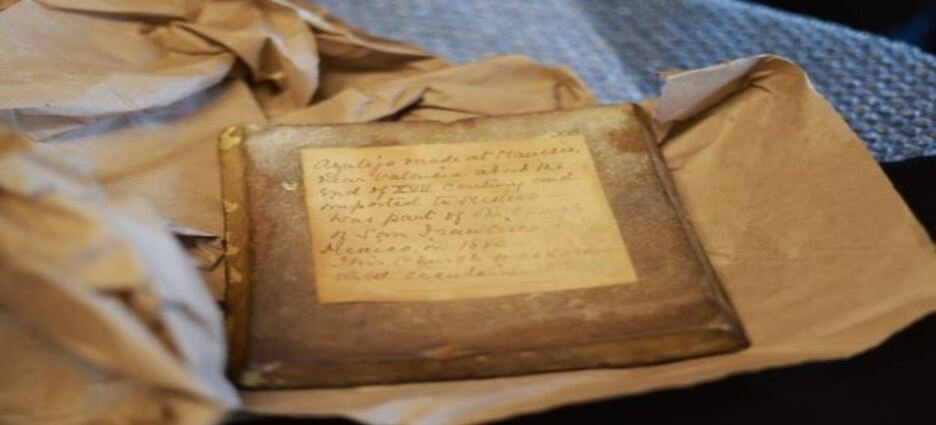 Azulejo made at Manises,
near Valencia about the
end of XVII Century and
imported to Mexico
was part of the
of San Francisco
Mexico, in 1883
This Church was
and